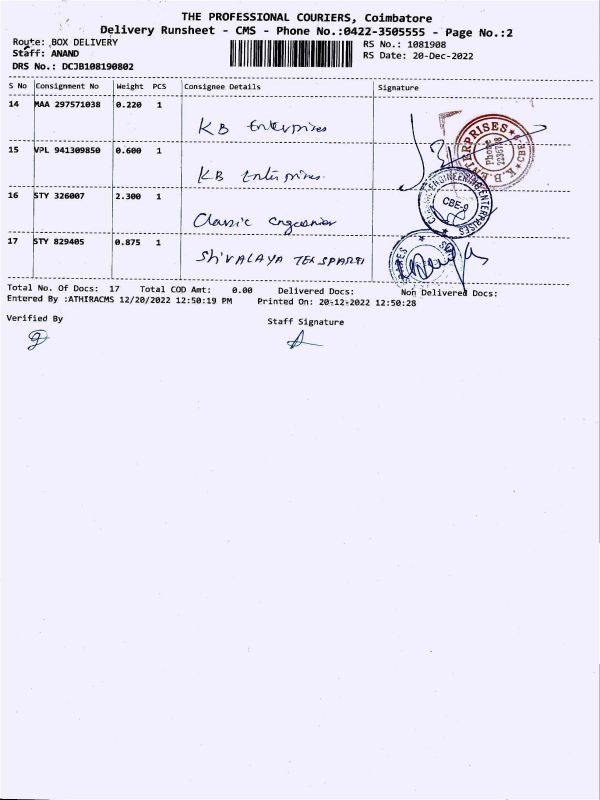 THE PROFESSIONAL COURIERS, Coimbatore
Delivery Runsheet - CMS - Phone No.:0422-3505555 - Page No.:2
Route: BOX DELIVERY
RS No.: 1081908
Staff: ANAND
RS Date: 20-Dec-2022
DRS No.: DCJB108190802
S No Consignment No Weight PCS Consignee Details Signature
14 MAA 297571038 0.220 1
KB Enterprises
K.B. ENTERPRISES CBE Phone
15 VPL 941309850 0.600 1
KB Enterprises
16 STY 326007 2.300 1
Classic
ENGINEERING ENTERPRISES CBE-9
17 STY 829405 0.875 1
SHIVALAYA
Total No. Of Docs: 17 Total COD Amt: 0.00 Delivered Docs: Non Delivered Docs:
Entered By :ATHIRACMS 12/20/2022 12:50:19 PM Printed On: 20-12-2022 12:50:28
Verified By
Staff Signature